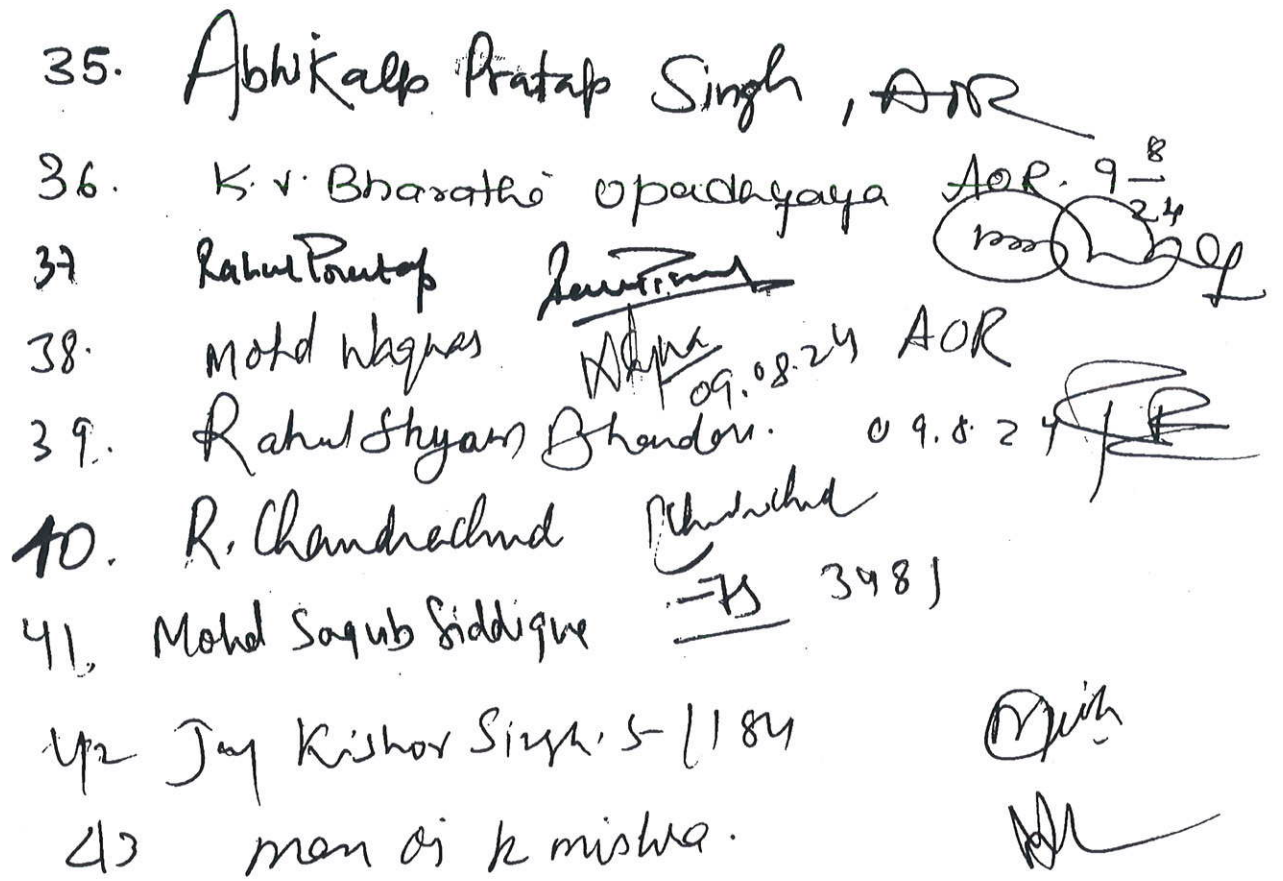 35. Abhikalp Pratap Singh, AOR
36. K.V. Bharathi Upadayaya AOR. 9-8/24
37 Rahul Pratap
38. Mohd Waquas 09.08.24 AOR
39. Rahul Shyam Bhandari. 09.8.24
40. R. Chandrachud
41. Mohd Saqub Siddique 3481
42 Jay Kishor Singh. S-1184
43 manoj k mishra.